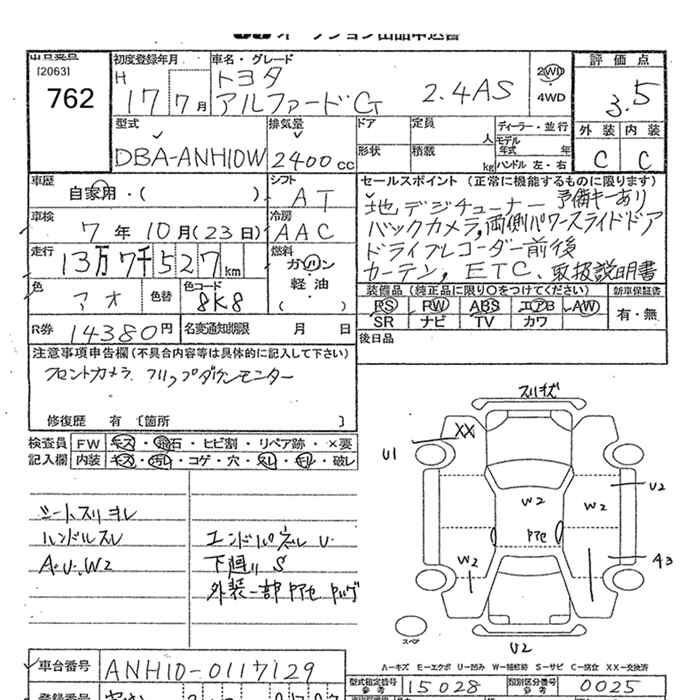 出品番号
[2063]
762
初度登録年月
H 17 7月
車名・グレード
トヨタ
アルファードG 2.4AS
2WD
4WD
評価点
3.5
外装 内装
C C
型式
DBA-ANH10W
排気量
2400cc
ドア 定員 人
形状 積載 kg
ディーラー・並行
モデル年式 年
ハンドル 左・右
車歴
自家用・( )
シフト
AT
車検
7年10月(23日)
冷房
AAC
走行
13万7千527km
燃料
ガソリン
軽油
( )
色
アオ
色替
色コード
8K8
R券
14380円
名変通知期限 月 日
セールスポイント (正常に機能するものに限ります)
地デジチューナー 予備キーあり
バックカメラ,両側パワースライドドア
ドライブレコーダー前後
カーテン, ETC、取扱説明書
装備品(純正品に限り○をつけてください) 新車保証書
PS PW ABS エアB AW
SR ナビ TV カワ
有・無
後日品
注意事項申告欄(不具合内容等は具体的に記入して下さい)
フロントカメラ フリップダウンモニター
修復歴 有 〔箇所 〕
検査員 FW キズ・飛石・ヒビ割・リペア跡・×要
記入欄 内装 キズ・汚れ・コゲ・穴・スレ・モレ・破レ
シートスリ ヨレ
ハンドルスレ
A・U・W2
エンドパネル U・
下廻り S
外装一部
スリキズ
XX
U1
U2
W2
W2
W2
A3
スペア
U2
A─キズ E─エクボ U─凹み W─補修跡 S─サビ C─腐食 XX─交換済
車台番号
ANH10-0117129
型式指定番号
参考
15028
類別区分番号
参考
0025
登録番号